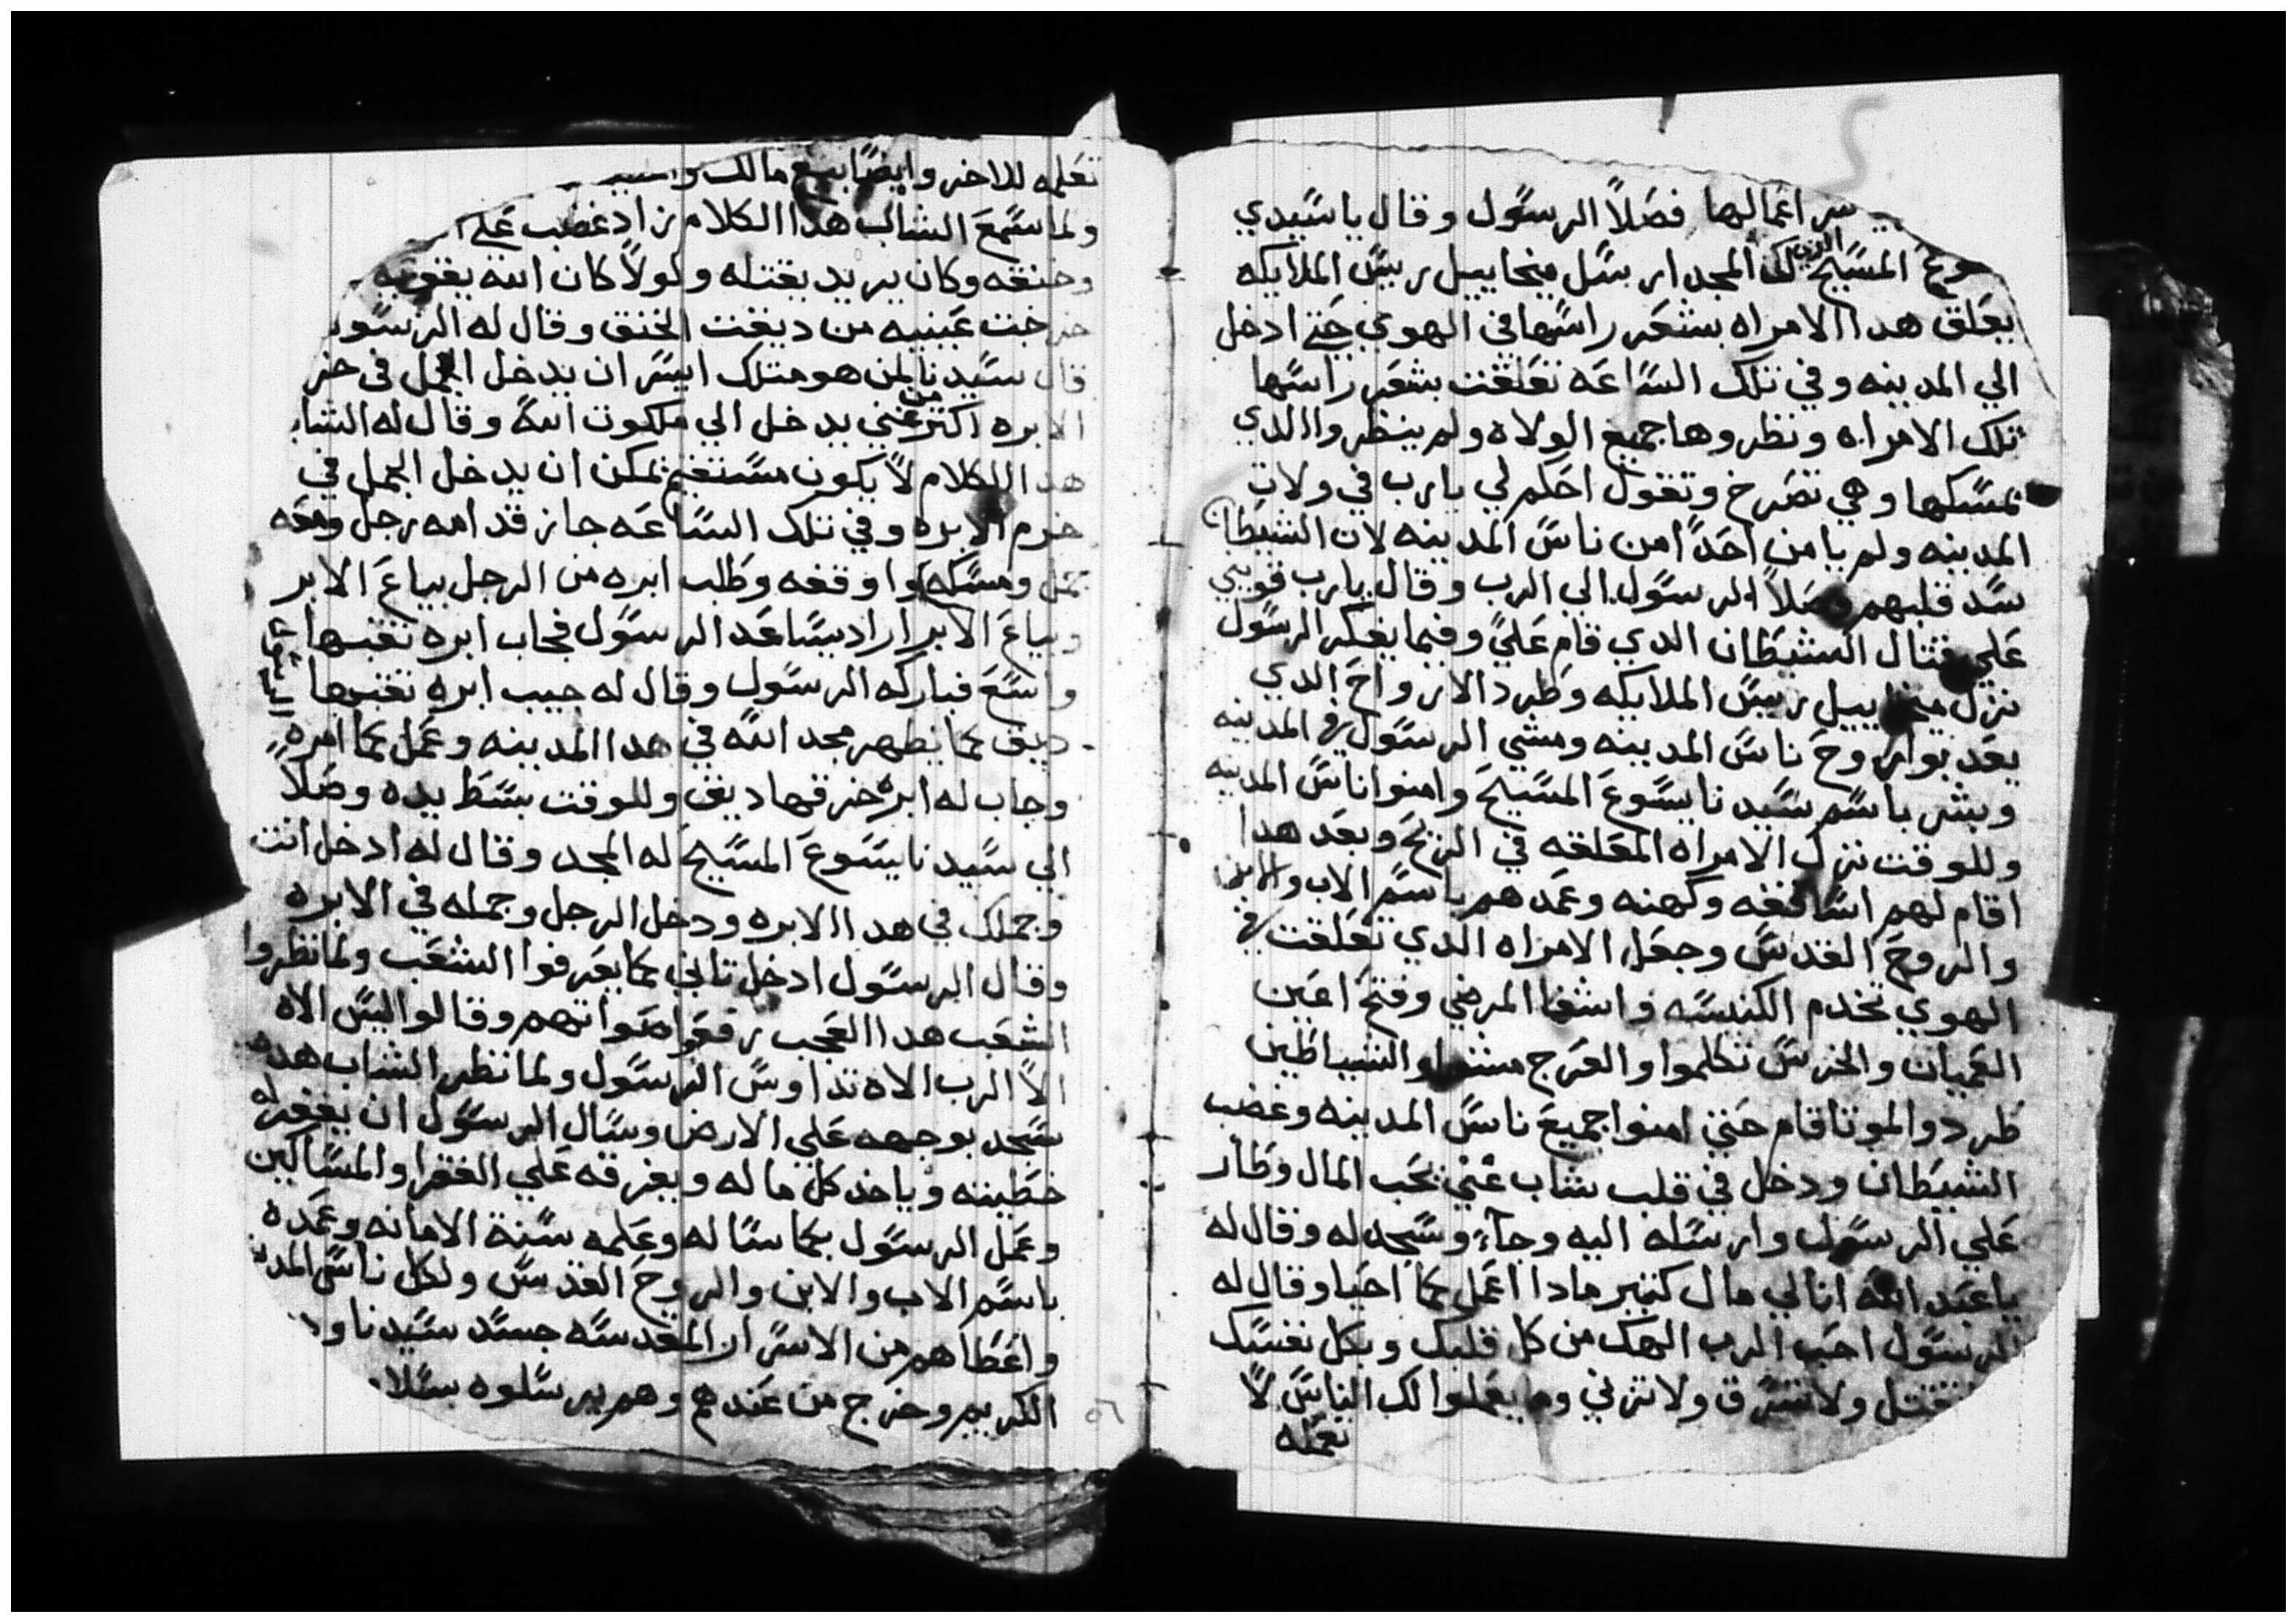 اعمالها فصلاً الرسول وقال ياسيدي
المسيح الذي لك المجد ارسل ميخاييل رييس الملايكه
يعلق هدا الامراه بشعر راسها في الهوي حتي ادخل
الي المدينه وفي تلك الساعه تعلقت بشعر راسها
تلك الامراه ونظروها جميع الولاه ولم ينظروا الدي
يمسكها وهي تصرخ وتقول احكم لي يارب في ولات
المدينه ولم يامن احداً من ناس المدينه لان الشيطان
سد قلبهم وصلاً الرسول الي الرب وقال يارب قويني
علي قتال الشيطان الدي قام علي وفيما يفكر الرسول
نزل ميخاييل رييس الملايكه وطرد الارواح الدي
يعدبوا روح ناس المدينه ومشي الرسول في المدينه
وبشر باسم سيدنا يسوع المسيح وامنوا ناس المدينه
وللوقت نزل الامراه المعلقه في الريح وبعد هدا
اقام لهم اساقفه وكهنه وعمدهم باسم الاب والابن
والروح القدس وجعل الامراه الدي تعلقت في
الهوي تخدم الكنيسه واشفا المرضي وفتح اعين
العميان والخرس تكلموا والعرج مشوا والشياطين
طردوا الموتا قام حتي امنوا جميع ناس المدينه وغضب
الشيطان ودخل في قلب شاب غني يحب المال وطار
علي الرسول وارسله اليه وجآء وسجد له وقال له
ياعبد الله انا لي مال كتير مادا اعمل كما احيا وقال له
الرسول احب الرب الهك من كل قلبك وبكل نفسك
تقتل ولا تسرق ولا تزني وما يعملوا لك الناس لاً
تعمله
تعلمه للاخر وايضاً بيع مالك
ولما سمع الشاب هدا الكلام زاد غضب علي
وخنقه وكان يريد يقتله ولولاً كان الله يقويه
خرجت عينيه من ديقت الخنق وقال له الرسول
قال سيدنا لمن هو متلك ايسر ان يدخل الجمل في خر
الابره اكتر من غني يدخل الي ملكوت الله وقال له الشاب
هدا الكلام لاً يكون مستقيم يمكن ان يدخل الجمل في
خرم الابره وفي تلك الساعه جاز قدامه رجل ومعه
جمل ومسكه واوقفه وطلب ابره من الرجل بياع الابر
وبياع الابر اراد يساعد الرسول فجاب ابره تقبها
واسع فباركه الرسول وقال له جيب ابره تقبها
ديق كما يظهر مجد الله في هدا المدينه وعمل كما امره
وجاب له ابره خرقها ديق وللوقت بسط يده وصلاً
الي سيدنا يسوع المسيح له المجد وقال له ادخل انت
وجملك في هدا الابره ودخل الرجل وجمله في الابره
وقال الرسول ادخل تاني كما يعرفوا الشعب ولما نظروا
الشعب هدا العجب رفعوا اصواتهم وقالوا ليس الاه
الاً الرب الاه تداوس الرسول ولما نظر الشاب هده
سجد بوجهه علي الارض وسال الرسول ان يغفر له
خطيته وياخد كل ماله ويفرقه علي الفقرا والمساكين
وعمل الرسول كما ساله وعلمه سنة الامانه وعمده
باسم الاب والابن والروح القدس ولكل ناس المدينه
واعطاهم من الاسرار المقدسه جسد سيدنا ودمه
الكريم وخرج من عندهم وهم يرسلوه بسلام
٥٦